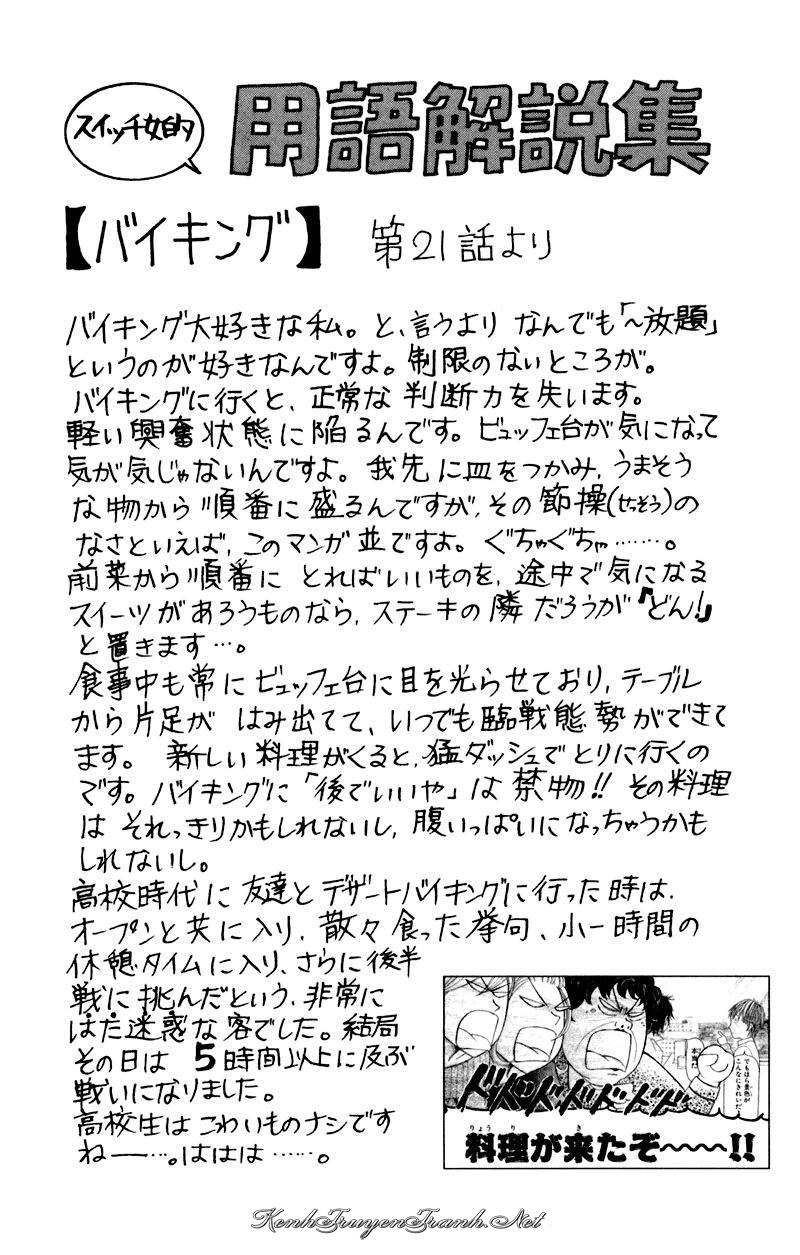 スイッチ女的
用語解説集
【バイキング】 第21話より
バイキング大好きな私。と、言うより なんでも「~放題」
というのが好きなんですよ。制限のないところが。
バイキングに行くと、正常な判断力を失います。
軽い興奮状態に陥るんです。ビュッフェ台が気になって
気が気じゃないんですよ。我先に皿をつかみ、うまそう
な物から順番に盛るんですが、その節操(せっそう)の
なさといえば、このマンガ並ですよ。ぐちゃぐちゃ………。
前菜から順番に とればいいものを、途中で気になる
スイーツがあろうものなら、ステーキの隣だろうが『どん!』
と置きます…。
食事中も常にビュッフェ台に目を光らせており、テーブル
から片足が はみ出てて、いつでも臨戦態勢ができて
ます。 新しい料理がくると、猛ダッシュでとりに行くの
です。バイキングに「後でいいや」は禁物!! その料理
は それっきりかもしれないし、腹いっぱいになっちゃうかも
しれないし。
高校時代に友達とデザートバイキングに行った時は、
オープンと共に入り、散々食った挙句、小一時間の
休憩タイムに入り、さらに後半
戦に挑んだという、非常に
はた迷惑な客でした。結局
その日は 5時間以上に及ぶ
戦いになりました。
高校生はこわいものナシです
ね――…。ははは……。
でもほら景色が
こんなにきれいだ
本当だ
ドドドドドドド
料理が来たぞ~~~~!!
りょうり き
KenhTruyenTranh.Net